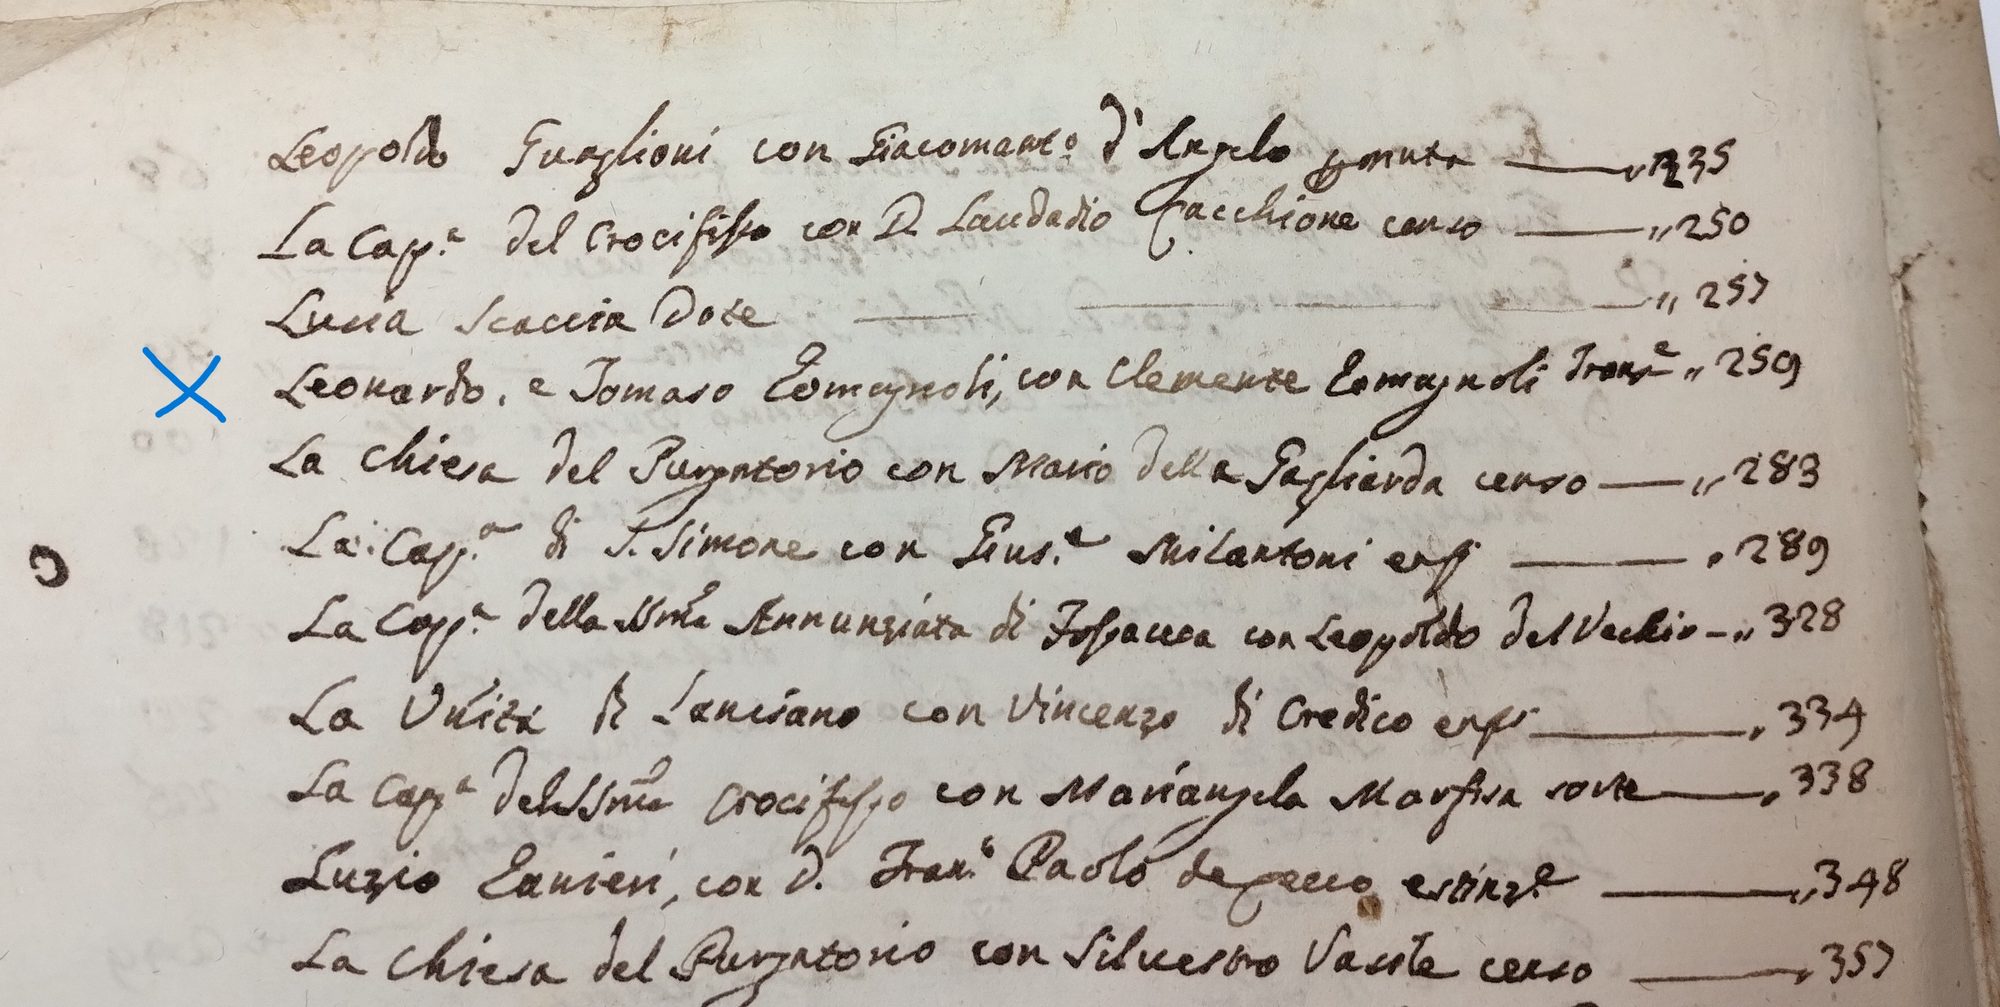 Leopoldo Guaglioni con Giacomant.o d'Angelo pmuta — „ 235
La Cap.a del Crocifisso con D. Laudadio Cacchione censo — „ 250
Lucia Scaccia Dote — — „ 257
Leonardo, e Tomaso Romagnoli, con Clemente Romagnoli Tranz.e „ 259
La Chiesa del Purgatorio con Mario della Gaglierda censo — „ 283
La Cap.a di S. Simone con Gius.e Milantoni — „ 289
La Capp.a della SSma Annunziata di Fossaceca con Leopoldo del Vechio — „ 328
La Unità di Lanciano con Vincenzo di Credico — „ 334
La Cap.a del SSmo Crocifisso con Mariangela Marfisa — „ 338
Luzio Ranieri, con D. Fran.co Paolo de Cecco estinz.e — „ 348
La Chiesa del Purgatorio con Silvestro Vasile censo — „ 357